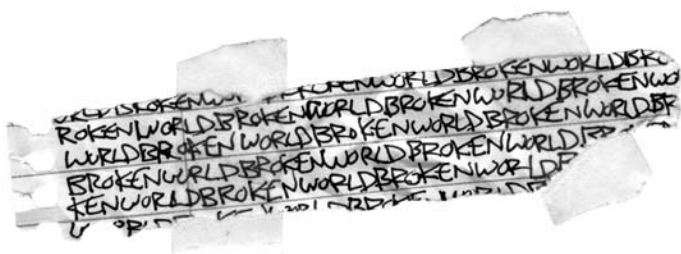 WORLDBROKENWORLDBROKENWORLDBROKENWORLDBRO
ROKENWORLDBROKENWORLDBROKENWORLDBROKENWO
WORLDBROKENWORLDBROKENWORLDBROKENWORLDBR
BROKENWORLDBROKENWORLDBROKENWORLD
KENWORLDBROKENWORLDBROKENWORLD